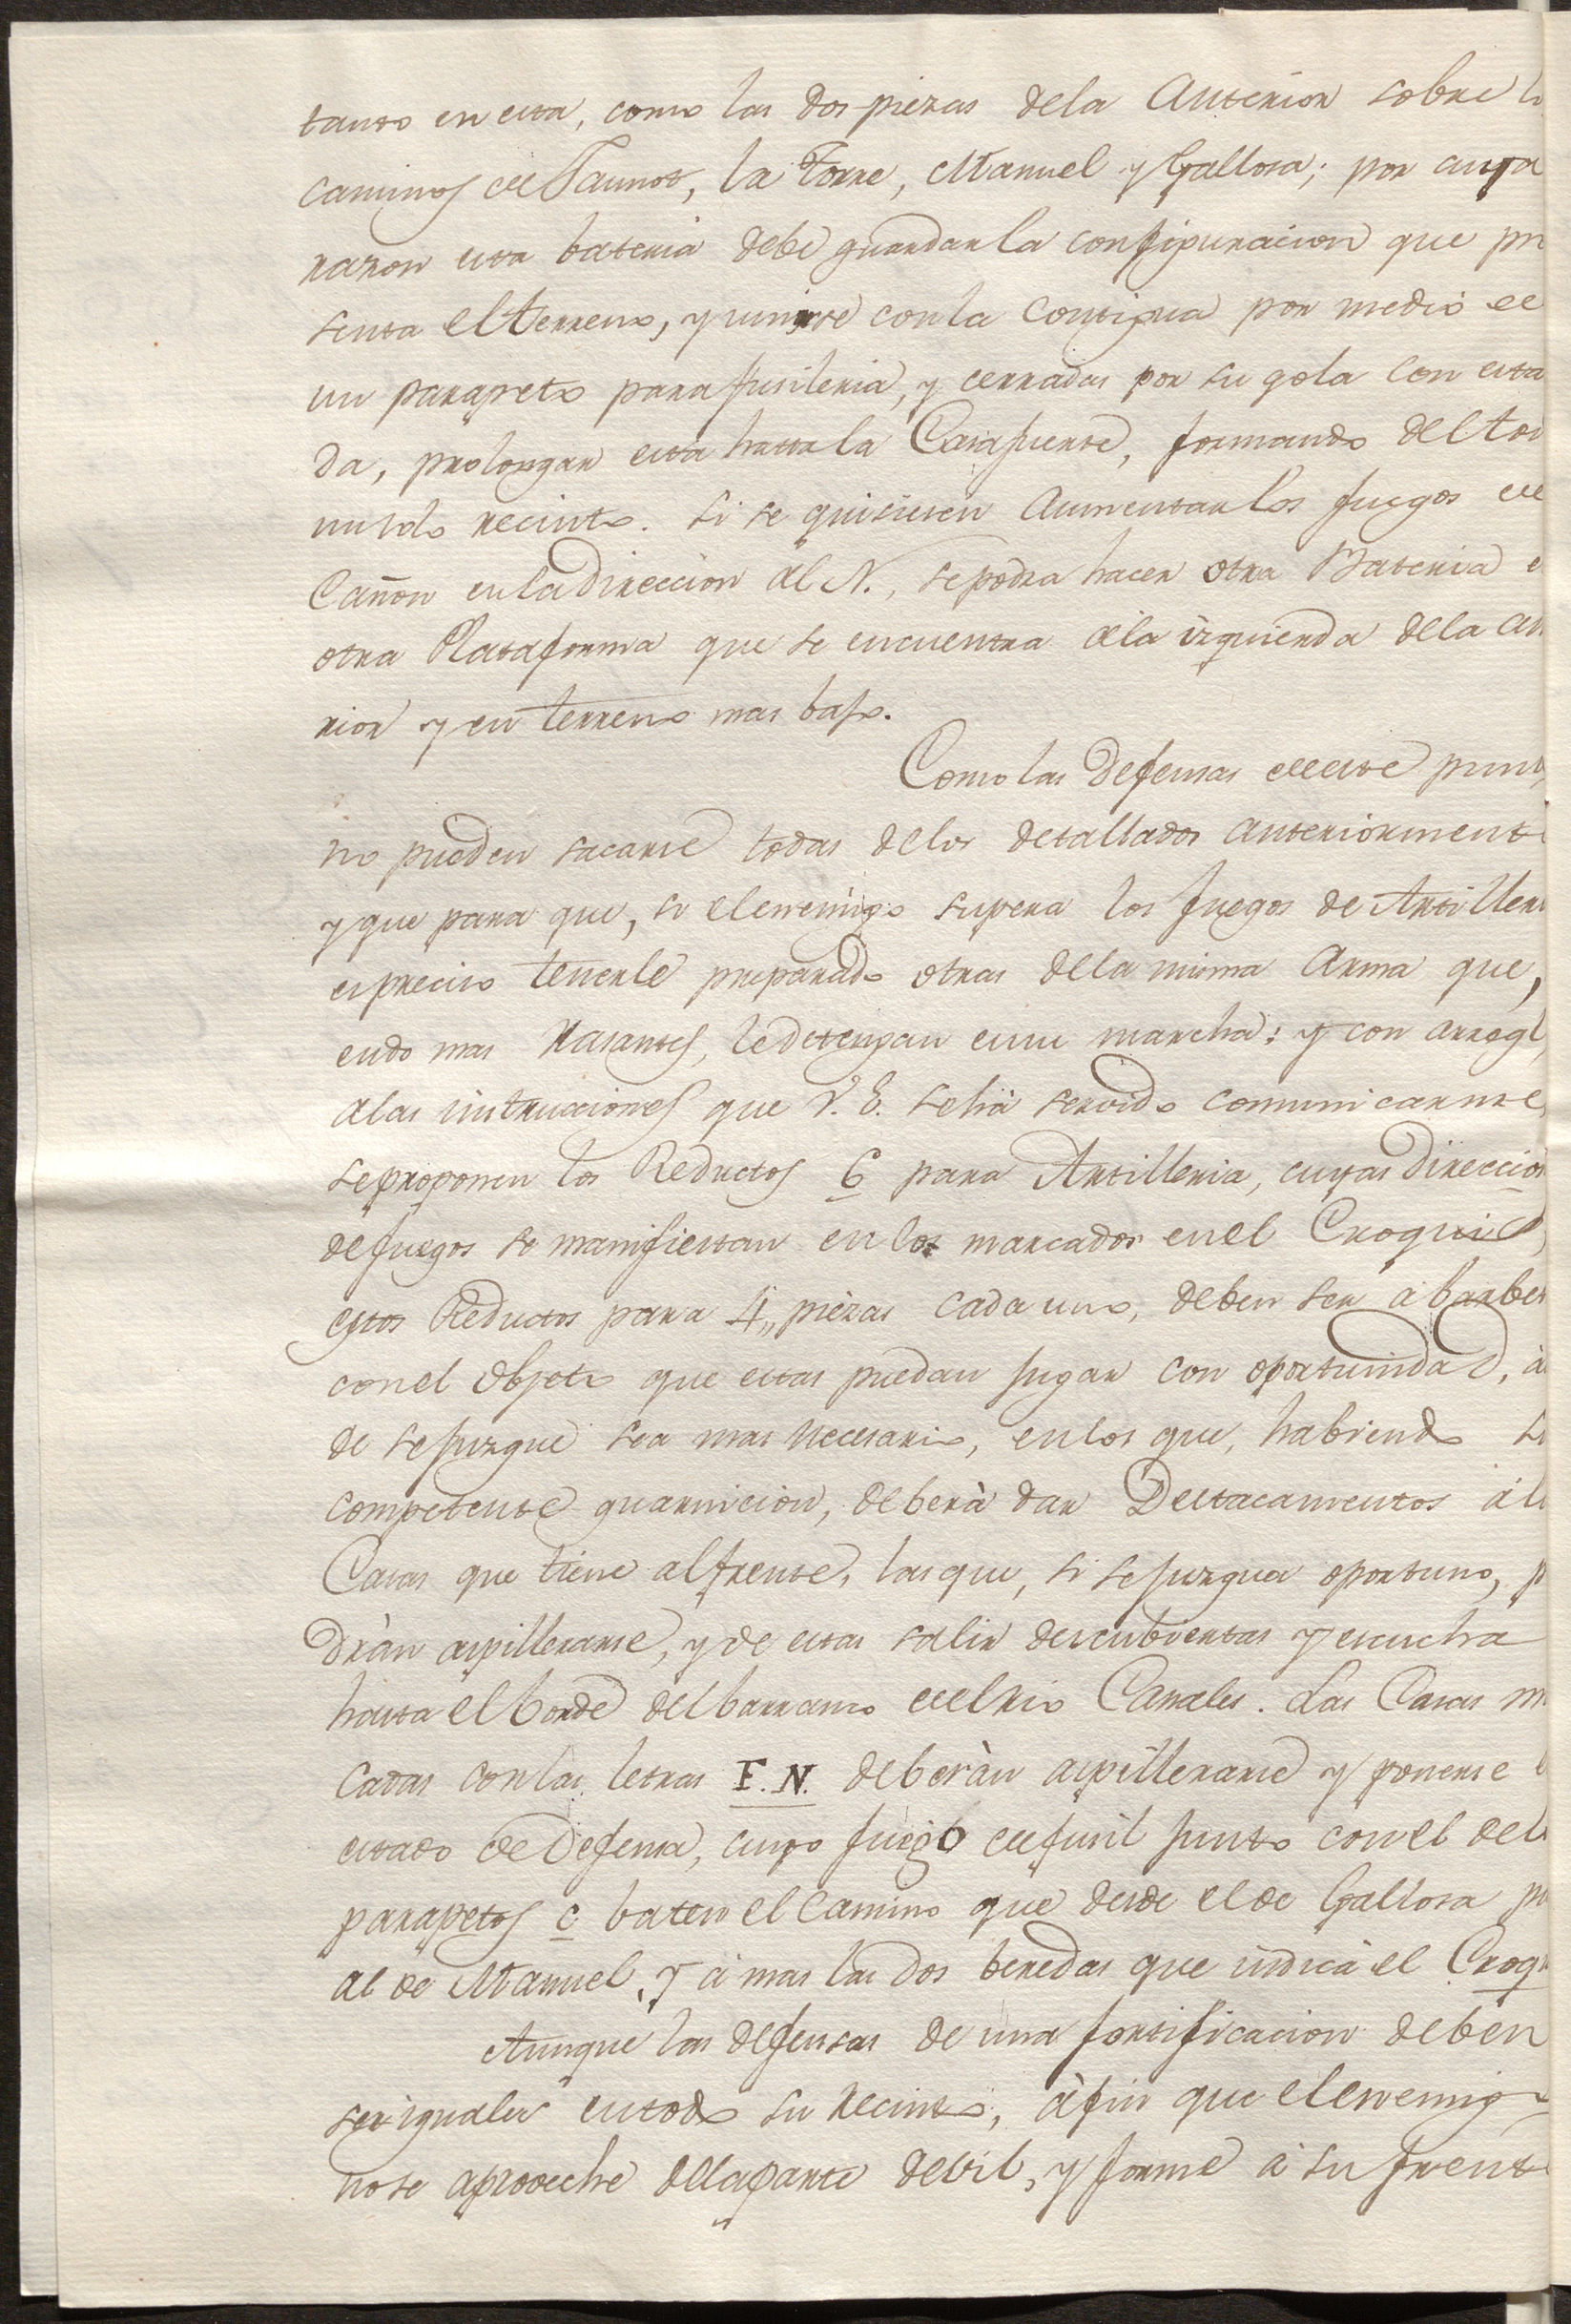 tanto en esta, como las dos piezas dela Anterior sobre lo
caminos de Taunot, la Torre, Manuel y Gallosa; por cuya
razon esta bateria debe guardar la configuracion que pre
senta el terreno, y unirse con la contigua por medio de
un parapeto para fusileria, y cerradas por su gola con esta
da, prolongar esta hasta la Casafuerte, formando del tod
un solo recinto. Si se quisiesen Aumentar los fuegos de
Cañon en la direccion al N., se podra hacer otra Bateria e
otra Plataforma que se encuentra ála izquierda dela an
rior y en terreno mas bajo.
Como las Defensas de este punt
no pueden sacarse todas delos detallados anteriorment
y que para que, si el enemigo supera los fuegos de Artilleri
es preciso tenerle preparado otras dela misma Arma que,
endo mas Rasantes, le detengan en su marcha: y con arregl
alas instrucciones que V. E. se há servido comunicarme,
se proponen los Reductos 6 para Artilleria, cuyas Direccion
de fuegos se manifiestan en los marcados en el Croquis,
estos Reductos para 4,, piezas cada uno, deben ser á barbet
con el objeto que estas puedan jugar con oportunidad, á
de se juzgue sea mas necesario, en los que, habiendo su
competente guarnicion, deberá dar Destacamentos á l
Casas que tiene al frente, las que, si se juzgua oportuno, p
drán aspillerarse, y de estas salir descubiertas y escucha
hasta el borde del barranco del rio Canales. Las Casas m
cadas con las letras F.N. deberán aspillerarse y ponerse
estado de Defensa, cuyo fuego de fusil junto con el del
parapetos c baten el Camino que desde el de Gallosa p
al de Manuel, y á mas las dos beredas que indica el Croq
Aunque las defensas de una fortificacion deben
ser iguales en todo su recinto, á fin que el enemigo
no se aproveche dela parte debil, y forme á su frent